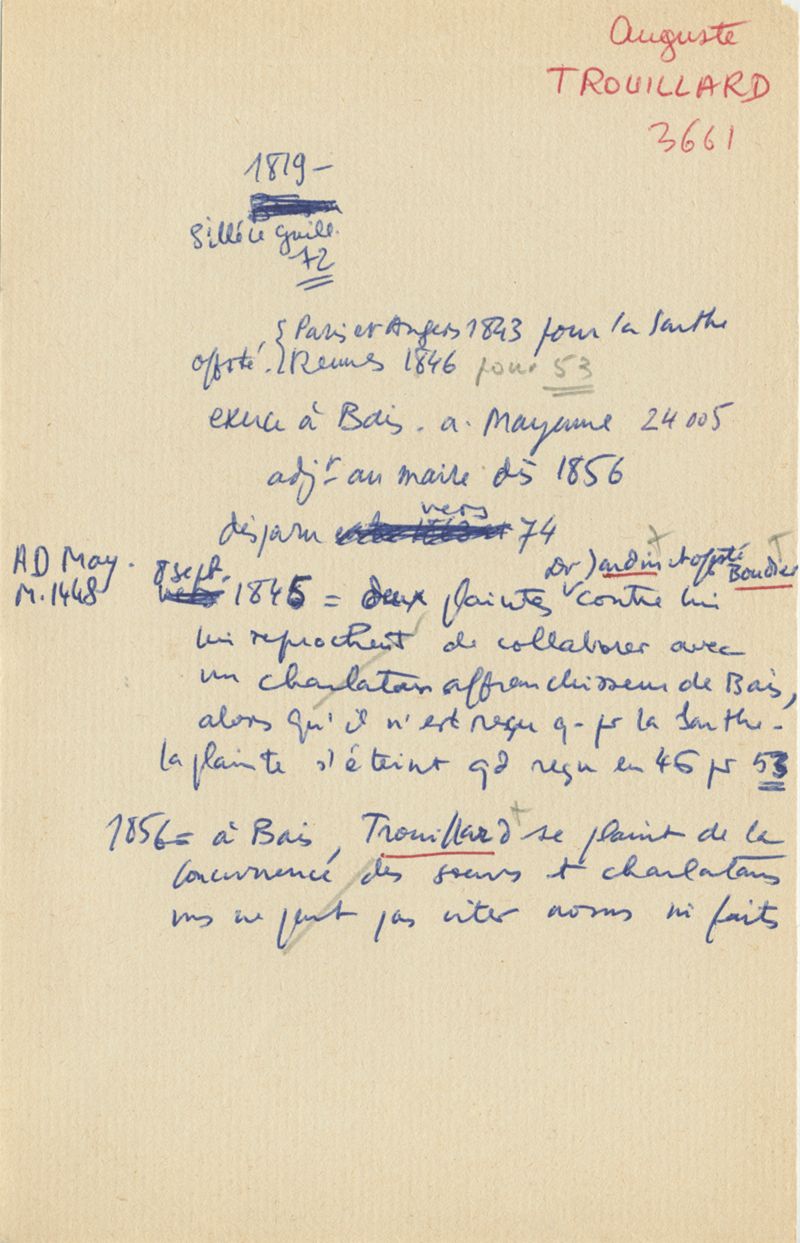 Auguste
TROUILLARD
3661
1819 -
Sillé le Guill.
72
{ Paris et Angers 1843 pour la Sarthe
offté. { Rennes 1846 pour 53
exerce à Bais. a. Mayenne 24 005
adjt au maire dès 1856
disparu vers 74
AD May.
M.1448
8 sept. 1845 = deux plaintes contre lui
Dr Jardin et offté Boudier
lui reprochent de collaborer avec
un charlatan affranchisseur de Bais,
alors qu'il n'est reçu q- pr la Sarthe -
la plainte s'éteint qd reçu en 46 pr 53
1856 = à Bais, Trouillard se plaint de la
concurrence des soeurs et charlatans
ms ne peut pas citer noms ni faits